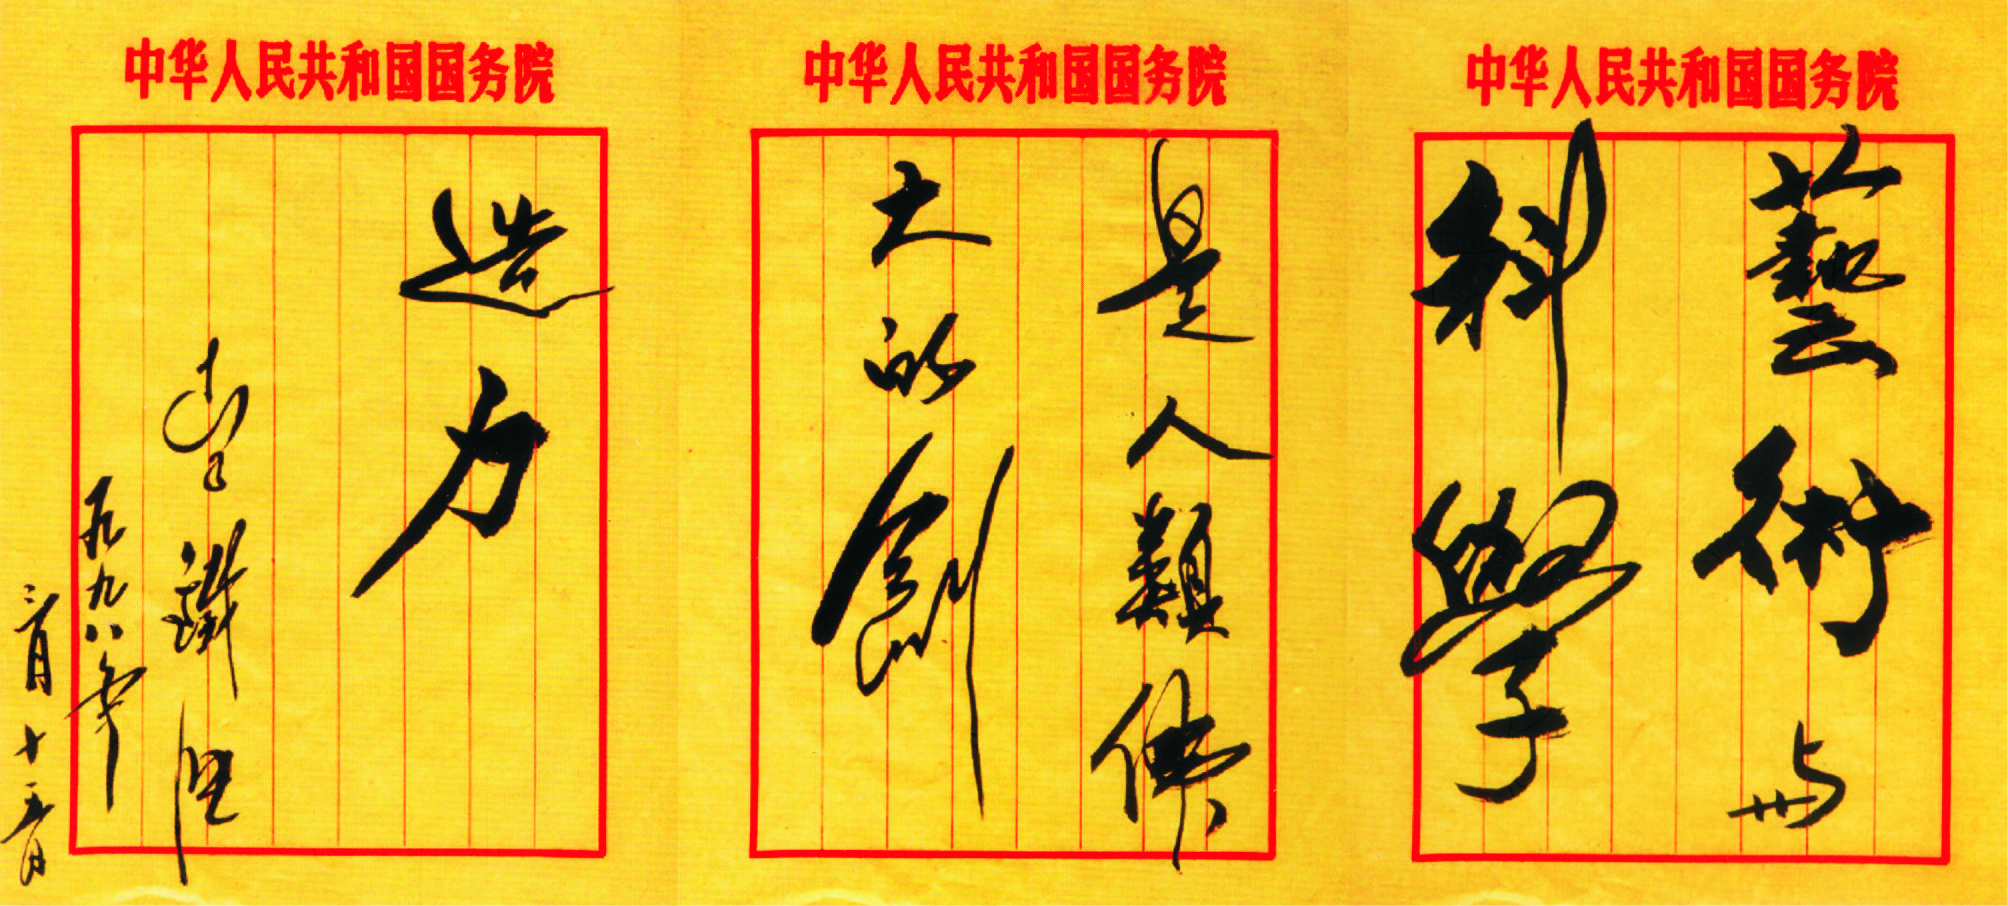 中华人民共和国国务院
藝術与
科學
中华人民共和国国务院
是人類偉
大的創
中华人民共和国国务院
造力
李鐵映
一九九八年
三月十五日